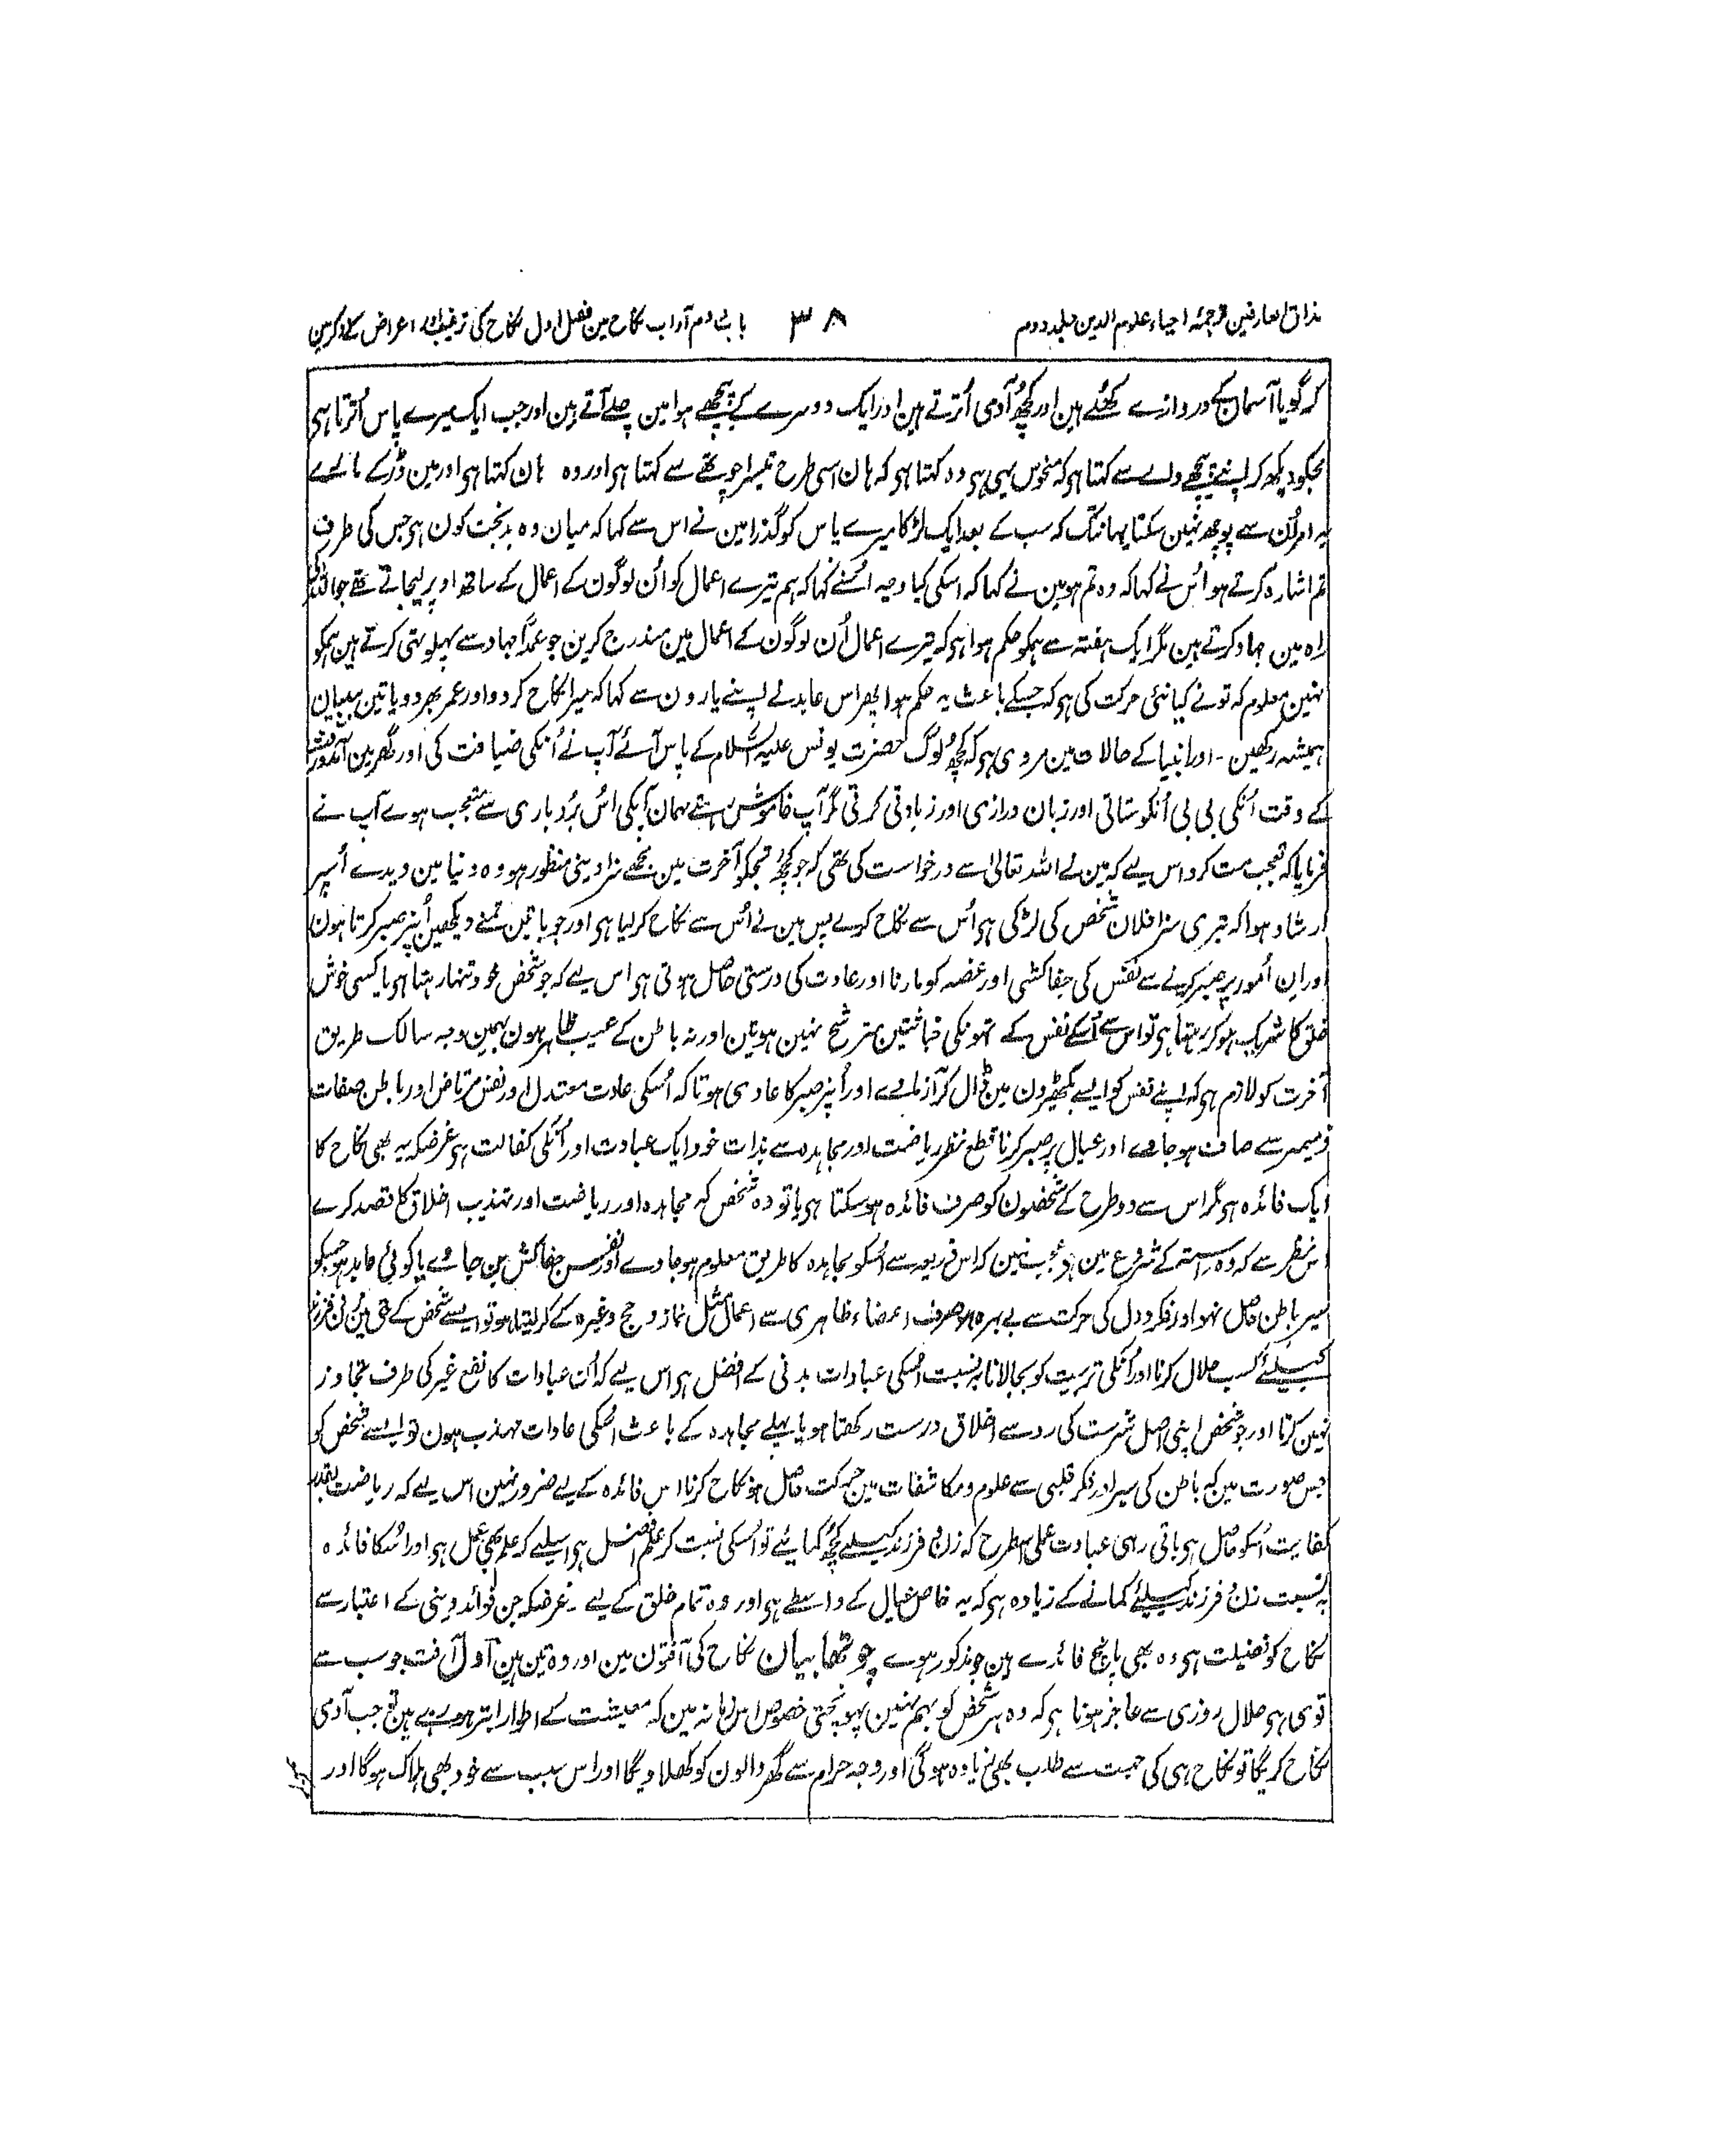 مذاق العارفین ترجمۂ احیاء علوم الدین جلد دوم ۳۸ باب دوم آداب نکاح مین فصل اول نکاح کی ترغیب اور اعراض کے ذکر مین
کہ گویا آسمان کے دروازے کھلے ہین اور کچھ آدمی اُترتے ہین اور ایک دوسرے کے پیچھے ہوا مین چلے آتے ہین اور جب ایک میرے پاس اُترتا ہی
مجکو دیکھ کر اپنے پیچھے والے سے کہتا ہی کہ منحوس یہی ہی وہ کہتا ہی کہ ہان اسی طرح تیسرا چوتھے سے کہتا ہی اور وہ ہان کہتا ہی اور مین ڈر کے مارے
یہ امر اُن سے پوچھ نہین سکتا یہانتک کہ سب کے بعد ایک لڑکا میرے پاس کو گذرا مین نے اس سے کہا کہ میان وہ بدبخت کون ہی جس کی طرف
تم اشارہ کرتے ہو اُس نے کہا کہ وہ تم ہو مین نے کہا کہ اسکی کیا وجہ اُسنے کہا کہ ہم تیرے اعمال کو اُن لوگون کے اعمال کے ساتھ اوپر لیجاتے تھے جو اللہ کی
راہ مین جہاد کرتے ہین مگر ایک ہفتہ سے ہمکو حکم ہوا ہی کہ تیرے اعمال اُن لوگون کے اعمال مین مندرج کرین جو عمداً جہاد سے پہلو تہی کرتے ہین ہمکو
نہین معلوم کہ تونے کیا نئی حرکت کی ہی کہ جسکے باعث یہ حکم ہوا پھر اس عابد نے اپنے یارون سے کہا کہ میرا نکاح کر دو اور عمر بھر دو یا تین بیبیان
ہمیشہ رکھین ۔ اور انبیا کے حالات مین مروی ہی کہ کچھ لوگ حضرت یونس علیہ السلام کے پاس آئے آپ نے اُنکی ضیافت کی اور گھر مین آمد و رفت
کے وقت اُنکی بی بی اُنکو ستاتی اور زبان درازی اور زیادتی کرتی مگر آپ خاموش رہتے مہمان آپکی اس بُردباری سے متعجب ہوے آپ نے
فرمایا کہ تعجب مت کرو اس لیے کہ مین نے اللہ تعالیٰ سے درخواست کی تھی کہ جو کچھ تجکو آخرت مین مجھے سزا دینی منظور ہو وہ دنیا مین دیدے اُسپر
ارشاد ہوا کہ تیری سزا فلان شخص کی لڑکی ہی اُس سے نکاح کرلے پس مین نے اُس سے نکاح کر لیا ہی اور جو باتین تمنے دیکھین اُنپر صبر کرتا ہون
اور ان اُمور پر صبر کرنے سے نفس کی جفاکشی اور غصہ کو مارنا اور عادت کی درستی حاصل ہوتی ہی اس لیے کہ جو شخص خود تنہا رہتا ہو یا کسی خوش
خلق کا شریک ہو کر رہتا ہی تو اس سے اُسکے نفس کے تہونکی خباثتین مترشح نہین ہوتین اور نہ باطن کے عیب ظاہر ہون بہمین وجہ سالک طریق
آخرت کو لازم ہی کہ اپنے نفس کو ایسے بکھیڑون مین ڈال کر آزماے اور اُنپر صبر کا عادی ہو تاکہ اُسکی عادت معتدل اور نفس مرتاض اور باطن صفات
ذمیمہ سے صاف ہو جاے اور عیال پر صبر کرنا قطع نظر ریاضت اور مجاہدہ سے بذات خود ایک عبادت اور اُنکی کفالت ہی غرضکہ یہ بھی نکاح کا
ایک فائدہ ہی مگر اس سے دو طرح کے شخصون کو صرف فائدہ ہو سکتا ہی یا تو وہ شخص کہ مجاہدہ اور ریاضت اور تہذیب اخلاق کا قصد کرے
اس نظر سے کہ وہ رستہ کے شروع مین ہی تو عجب نہین کہ اس ذریعہ سے اُسکو مجاہدہ کا طریق معلوم ہو جاوے اور نفس جفاکش بن جائے یا کوئی عابد ہو جسکو
سیر باطن حاصل نہو اور فکر و دل کی حرکت سے بے بہرہ ہو صرف اعضاء ظاہری سے اعمال مثل نماز و حج وغیرہ کے کر لیتا ہو تو ایسے شخص کے حق مین زن و فرزند
کیلئے کسب حلال کرنا اور اُنکی تربیت کو بجا لانا بہ نسبت اُسکی عبادات بدنی کے افضل ہی اس لیے کہ اُن عبادات کا نفع غیر کی طرف تجاوز
نہین کرتا اور جو شخص اپنی اصل سرشت کی رو سے اخلاق درست رکھتا ہو یا پہلے مجاہدہ کے باعث اُسکی عادات مہذب ہون تو ایسے شخص کو
جس صورت مین کہ باطن کی سیر اور فکر قلبی سے علوم و مکاشفات مین حرکت حاصل ہو نکاح کرنا اس فائدہ کے لیے ضرور نہین اس لیے کہ ریاضت بقدر
کفایت اُسکو حاصل ہی باقی رہی عبادت عملی اسطرح کہ زن و فرزند کیلئے کچھ کمائیے تو اُسکی نسبت کر علم افضل ہی اسلیے کہ علم بھی عمل ہی اور اُسکا فائدہ
بہ نسبت زن و فرزند کیلئے کمانے کے زیادہ ہی کہ یہ خاص عیال کے واسطے ہی اور وہ تمام خلق کے لیے ۔ غرضکہ جن فوائد دینی کے اعتبار سے
نکاح کو فضیلت ہی وہ بھی پانچ فائدے ہین جو مذکور ہوے چوتھا بیان نکاح کی آفتون مین اور وہ تین ہین اول آفت جو سب سے
قوی ہی حلال روزی سے عاجز ہونا ہی کہ وہ ہر شخص کو بہم نہین پہونچتی خصوص اس زمانہ مین کہ معیشت کے اطوار ابتر ہو رہے ہین تو جب آدمی
نکاح کریگا تو نکاح ہی کی جہت سے طلب بھی زیادہ ہوگی اور وجہ حرام سے گھر والون کو کھلاویگا اور اس سبب سے خود بھی ہلاک ہوگا اور